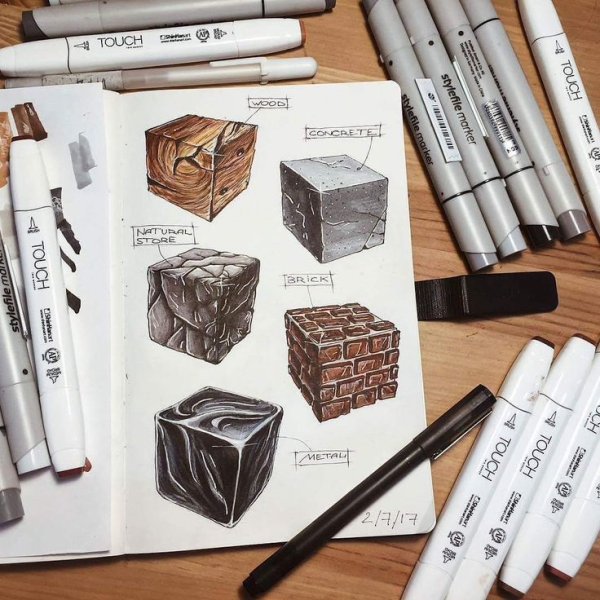 TOUCH
ShinHanart
WOOD
CONCRETE
NATURAL
STORE
BRICK
METAL
2/7/17
stylefile marker
stylefile marker
stylefile marker
TOUCH
ShinHanart
TOUCH
ShinHanart
TOUCH
ShinHanart
TOUCH
ShinHanart
TOUCH
ShinHanart